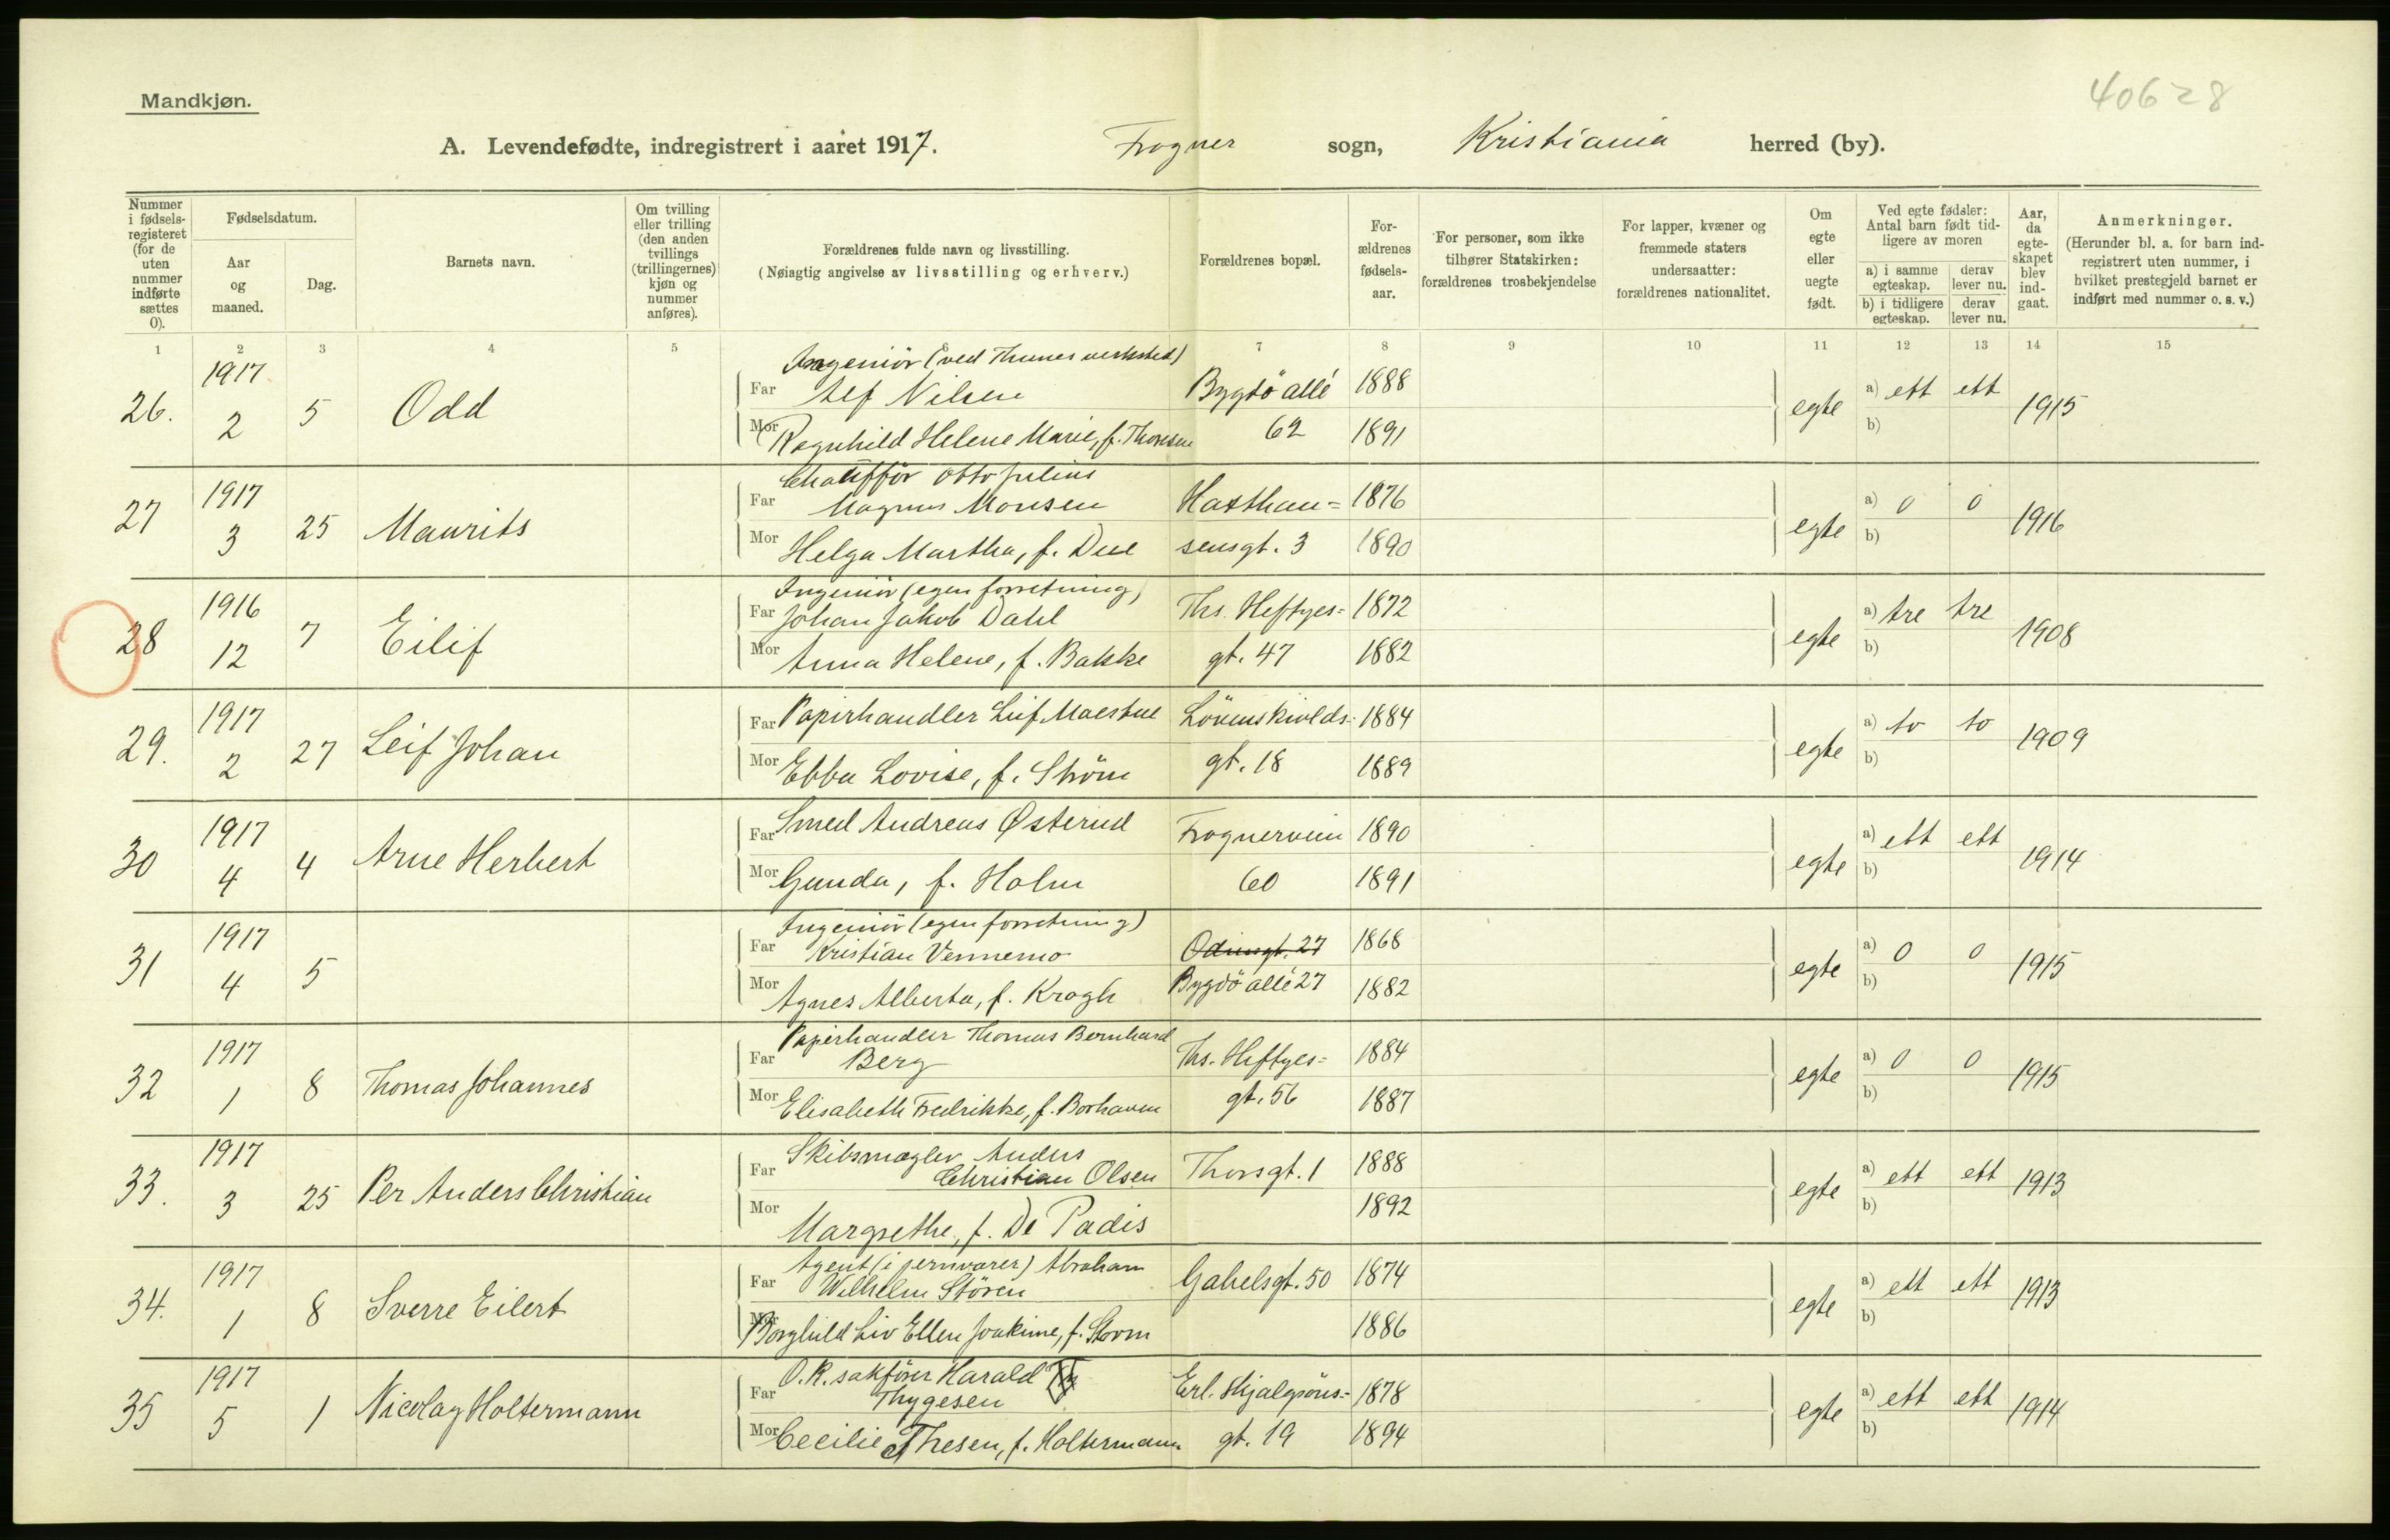 Mandkjøn.
40628
A. Levendefødte, indregistrert i aaret 1917. Frogner sogn, Kristiania herred (by).
Nummer i fødselsregisteret (for de uten nummer indførte sættes 0).
Fødselsdatum.
Aar og maaned.
Dag.
Barnets navn.
Om tvilling eller trilling (den anden tvillings (trillingernes) kjøn og nummer anføres).
Forældrenes fulde navn og livsstilling.
(Nøiagtig angivelse av livsstilling og erhverv.)
Forældrenes bopæl.
Forældrenes fødselsaar.
For personer, som ikke tilhører Statskirken: forældrenes trosbekjendelse
For lapper, kvæner og fremmede staters undersaatter: forældrenes nationalitet.
Om egte eller uegte født.
Ved egte fødsler: Antal barn født tidligere av moren
a) i samme egteskap. derav lever nu.
b) i tidligere egteskap. derav lever nu.
Aar, da egteskapet blev indgaat.
Anmerkninger.
(Herunder bl. a. for barn indregistrert uten nummer, i hvilket prestegjeld barnet er indført med nummer o. s. v.)
1 2 3 4 5 7 8 9 10 11 12 13 14 15
Ingeniör (ved Thunes verksted)
26. 1917 2 5 Odd Far Alf Nilsen Bygdö allé 1888 egte a) ett ett 1915
Mor Ragnhild Helene Marie, f. Thoresen 62 1891 b)
Chaufför Otto Julius
27 1917 3 25 Maurits Far Magnus Monsen Haxthau= 1876 egte a) 0 0 1916
Mor Helga Martha, f. Due sensgt. 3 1890 b)
Ingeniör (egen forretning)
28 1916 12 7 Eilif Far Johan Jakob Dahl Ths. Heftyes= 1872 egte a) tre tre 1908
Mor Anna Helene, f. Bakke gt. 47 1882 b)
29. 1917 2 27 Leif Johan Far Papirhandler Leif Maestue Lövenskiolds= 1884 egte a) to to 1909
Mor Ebba Lovise, f. Ström gt. 18 1889 b)
30 1917 4 4 Arne Herbert Far Smed Andreas Østerud Frognerveien 1890 egte a) ett ett 1914
Mor Gunda, f. Holm 60 1891 b)
Ingeniör (egen forretning)
31 1917 4 5 Far Kristian Vennemo Odinsgt. 27 1868 egte a) 0 0 1915
Mor Agnes Alberta, f. Krogh Bygdö allé 27 1882 b)
Papirhandler Thomas Bernhard
32 1917 1 8 Thomas Johannes Far Berg Ths. Heftyes= 1884 egte a) 0 0 1915
Mor Elisabeth Fredrikke, f. Borhaven gt. 56 1887 b)
Skibsmægler Anders
33. 1917 3 25 Per Anders Christian Far Christian Olsen Thorsgt. 1 1888 egte a) ett ett 1913
Mor Margrethe, f. De Padis 1892 b)
Agent (i jernvarer) Abraham
34. 1917 1 8 Sverre Eilert Far Wilhelm Stören Gabelsgt. 50 1874 egte a) ett ett 1913
Mor Borghild Liv Ellen Joakime, f. Storm 1886 b)
O.R. sakförer Harald
35 1917 5 1 Nicolay Holtermann Far Thygesen Erl. Hjalgsöns= 1878 egte a) ett ett 1914
Mor Cecilie Thesen, f. Holtermann gt. 19 1894 b)